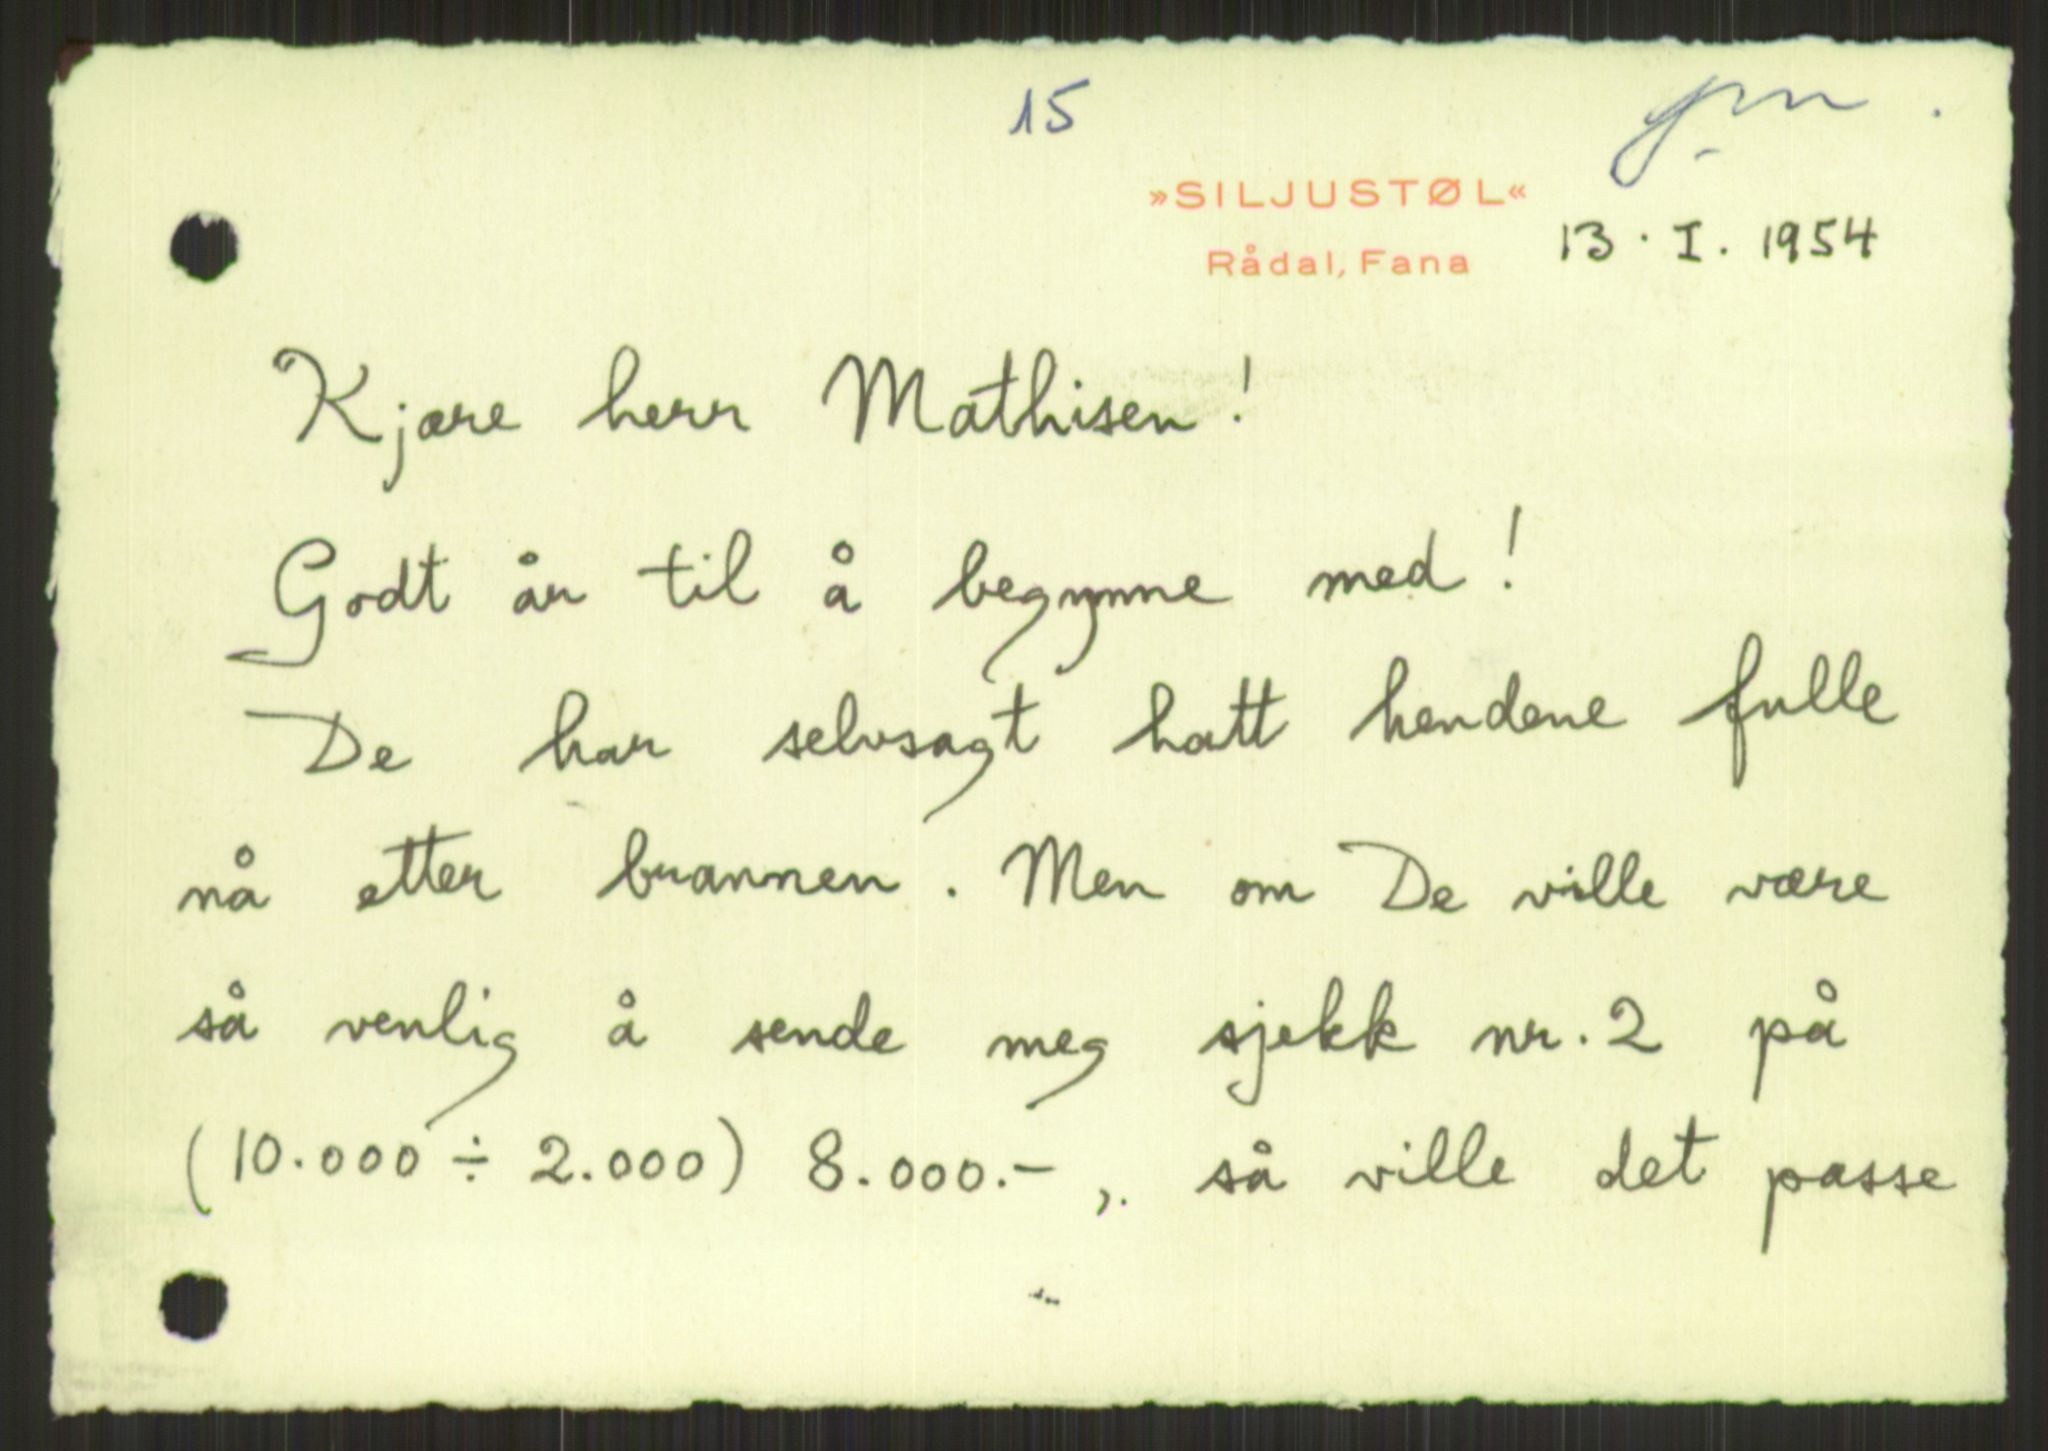 15
»SILJUSTØL«
Rådal, Fana
13. I. 1954
Kjære herr Mathisen!
Godt år til å begynne med!
De har selvsagt hatt hendene fulle
nå etter brannen. Men om De ville være
så venlig å sende meg sjekk nr. 2 på
(10.000 ÷ 2.000) 8.000.-, så ville det passe